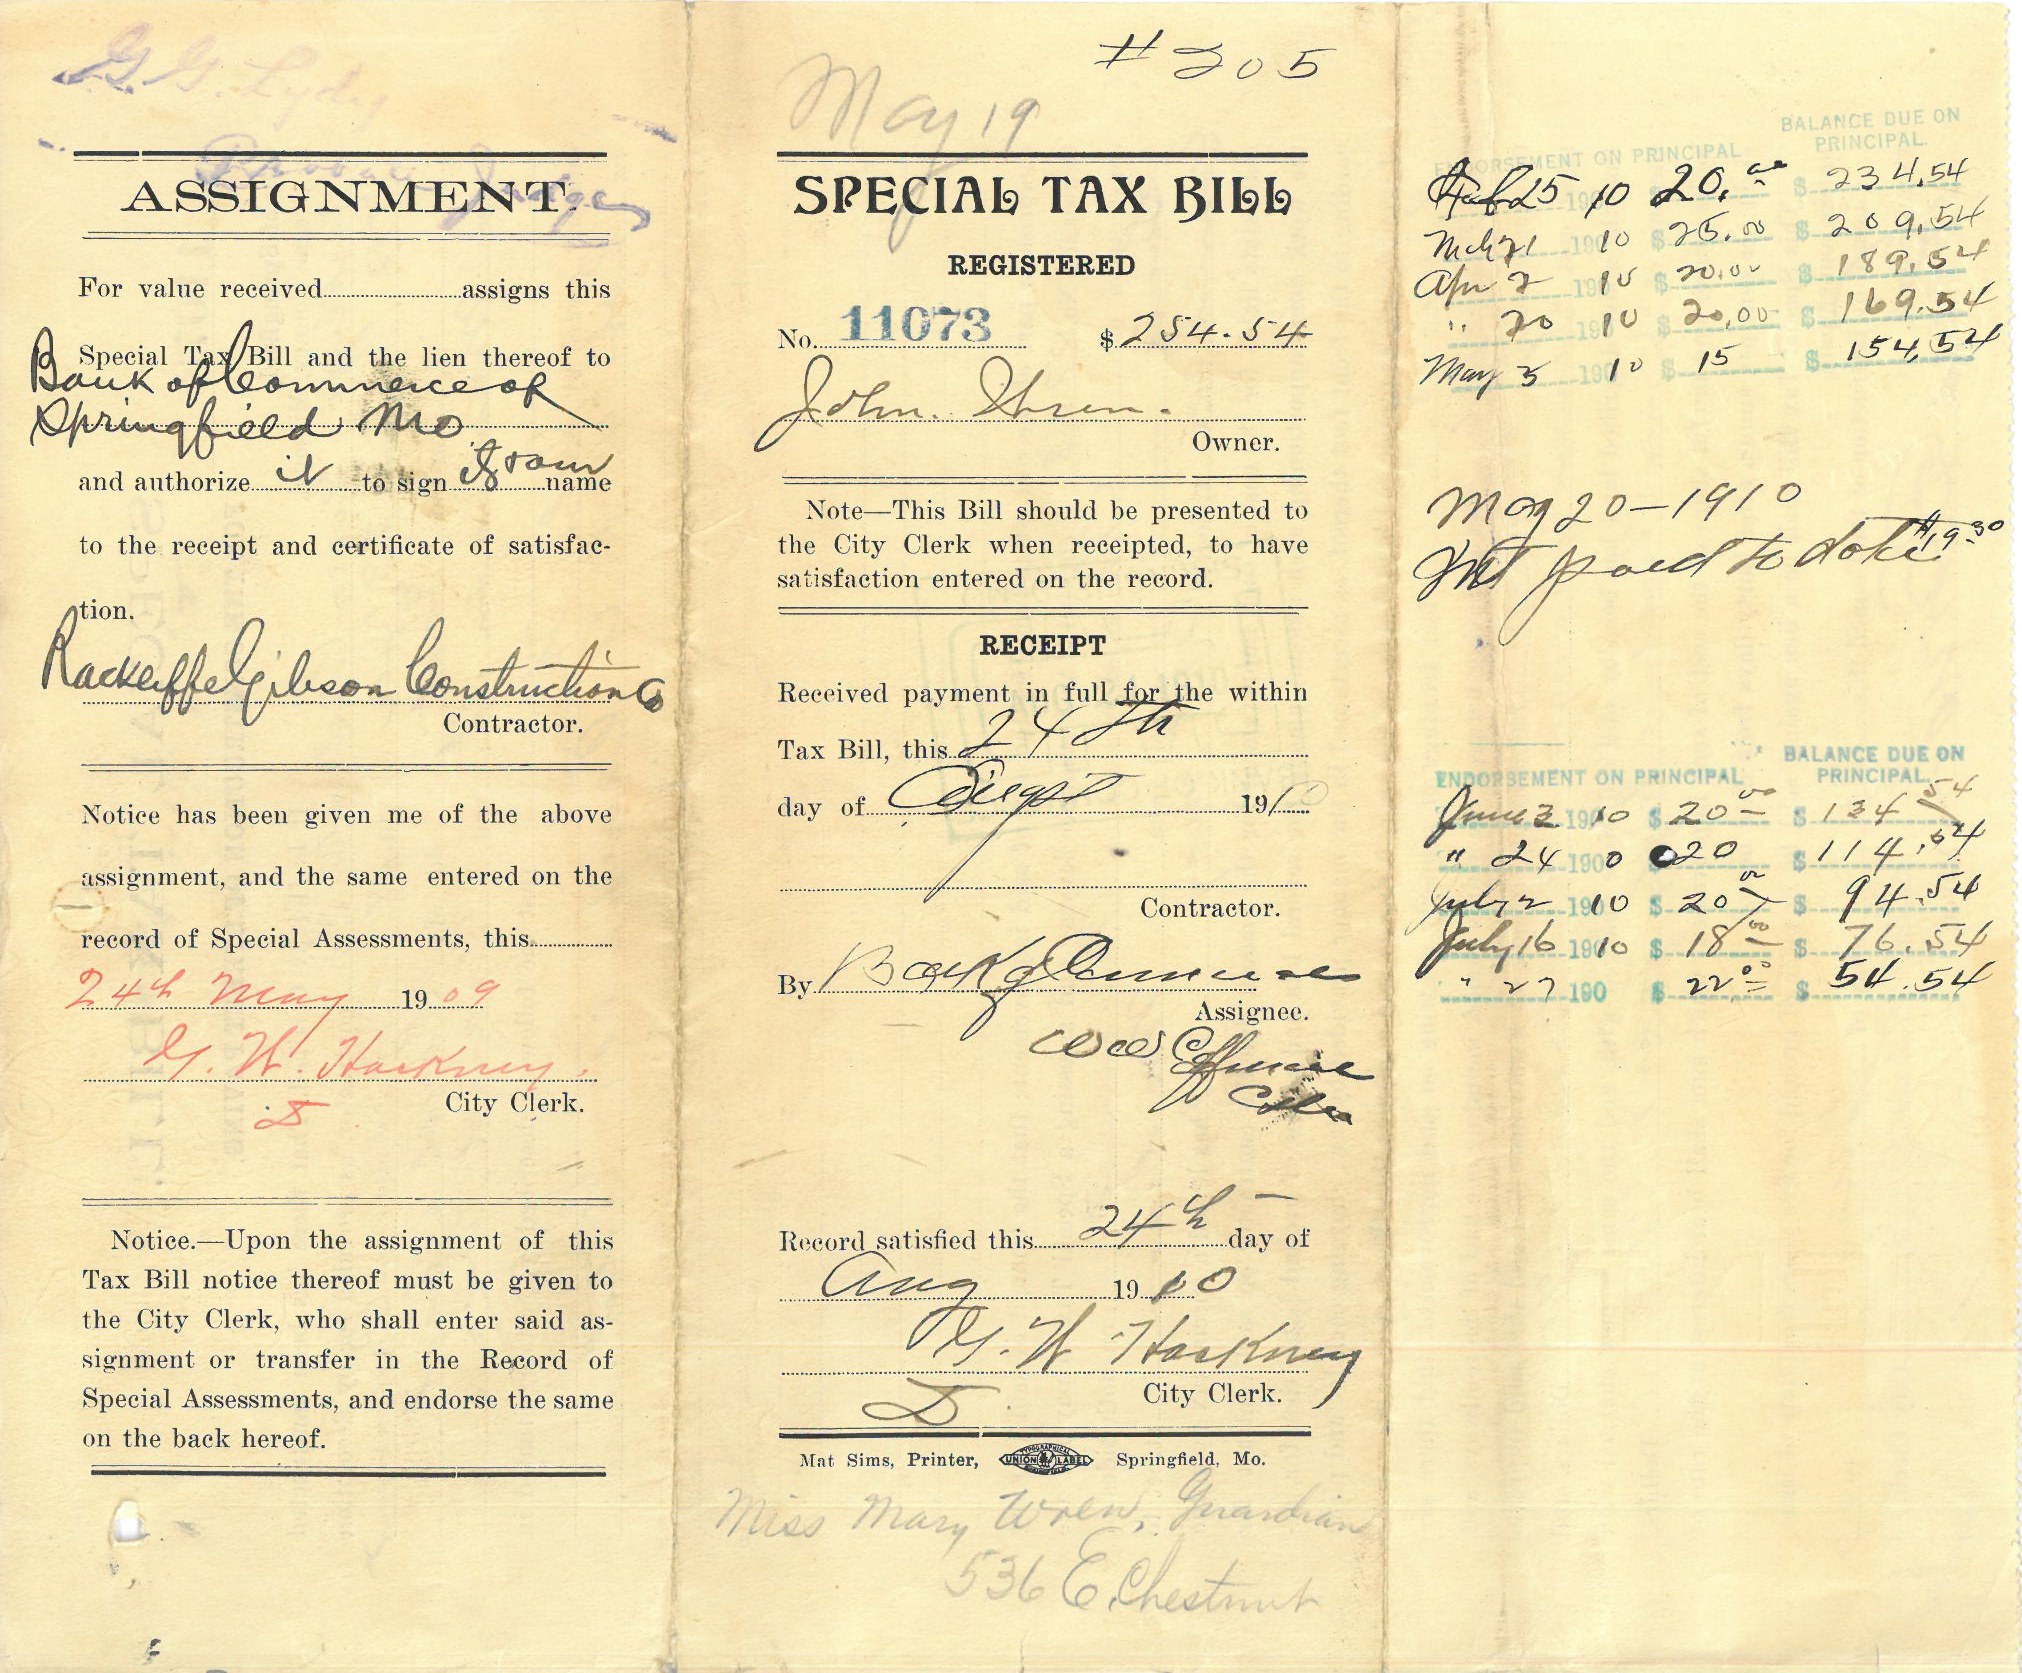 G. G. Lydy
Probate Judge
ASSIGNMENT.
For value received assigns this
Special Tax Bill and the lien thereof to
Bank of Commerce of
Springfield Mo
and authorize it to sign name
to the receipt and certificate of satisfac-
tion.
Gibson Construction Co
Contractor.
Notice has been given me of the above
assignment, and the same entered on the
record of Special Assessments, this
24th May 1909
G. W. Hackney.
City Clerk.
Notice.—Upon the assignment of this
Tax Bill notice thereof must be given to
the City Clerk, who shall enter said as-
signment or transfer in the Record of
Special Assessments, and endorse the same
on the back hereof.
# 205
May 19
SPECIAL TAX BILL
REGISTERED
No. 11073 $254.54
John
Owner.
Note—This Bill should be presented to
the City Clerk when receipted, to have
satisfaction entered on the record.
RECEIPT
Received payment in full for the within
Tax Bill, this 24th
day of Augst 1910
Contractor.
By Bank of Commerce
Assignee.
Record satisfied this 24th day of
Aug 1910
G. W Hackney
City Clerk.
Mat Sims, Printer, TYPOGRAPHICAL UNION LABEL Springfield, Mo.
Miss Mary Wren, Guardian
536 E. Chestnut
ENDORSEMENT ON PRINCIPAL BALANCE DUE ON PRINCIPAL.
Feb 25 190 10 $ 20.00 $ 234.54
Mch 21 190 10 $ 25.00 $ 209.54
Apr 2 190 10 $ 20.00 $ 189.54
" 20 190 10 $ 20.00 $ 169.54
May 5 190 10 $ 15 $ 154.54
May 20-1910
Int paid to date $19.30
ENDORSEMENT ON PRINCIPAL BALANCE DUE ON PRINCIPAL.
June 3 190 10 $ 20 00 $ 134 54
" 24 190 0 20 $ 114.54
July 2 190 10 $ 20 00 $ 94.54
July 16 190 10 $ 18 00 $ 76.54
" 27 190 $ 22 00 $ 54.54